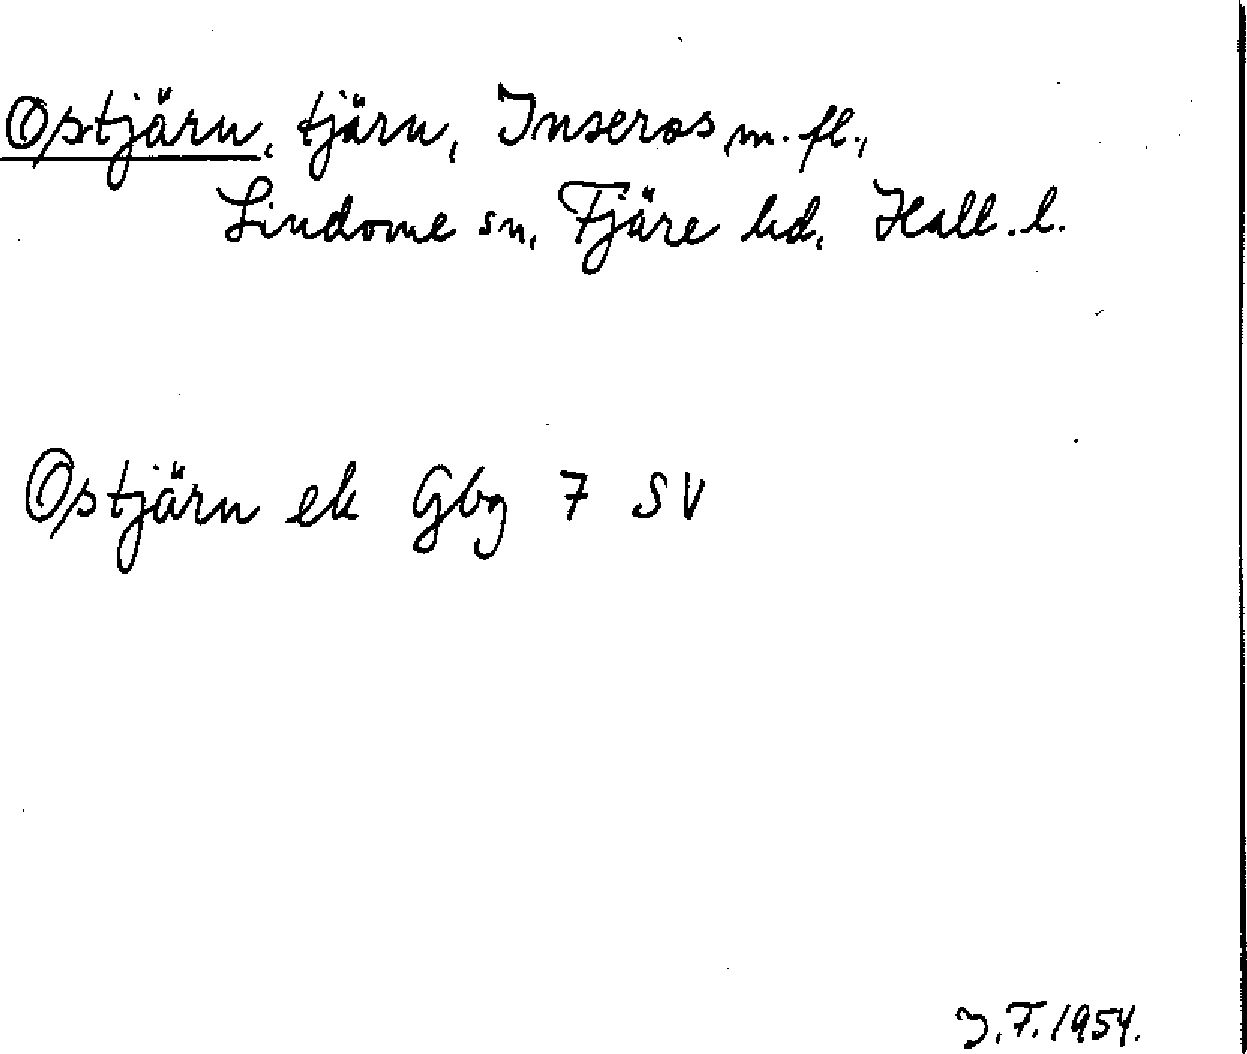 Ostjärn, tjärn, Inseros m. fl.,
Lindome sn, Fjäre hd, Hall. l.
Ostjärn ek Gbg 7 SV
J.F. 1954.